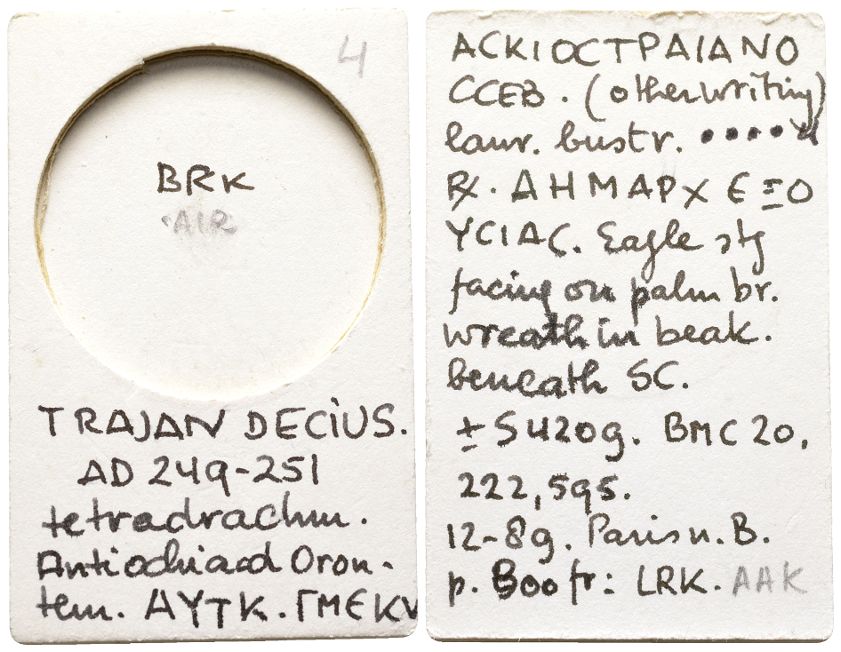 4
BRK
AIR
TRAJAN DECIUS.
AD 249-251
tetradrachm.
Antiochia ad Oron-
tem. AYTK. ΓMEKV
ACKIOCTPAIANO
CCEB. (other writing)
laur. bust r. ••••
R. AHMAPX EΞO
YCIAC. Eagle stg
facing on palm br.
wreath in beak.
beneath SC.
± S 420g. BMC 20,
222, 595.
12-8g. Paris n. B.
p. 800 fr: LRK. AAK